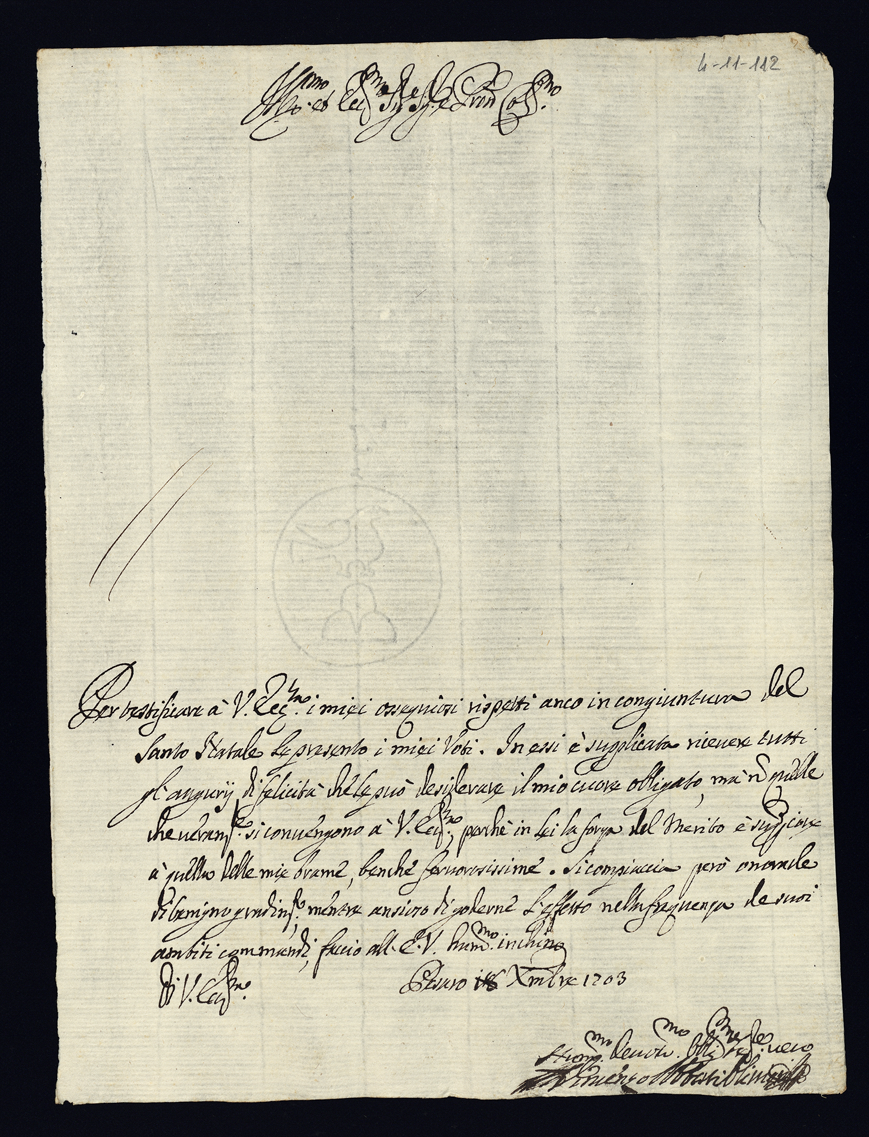 4-11-112
Ill.mo et Ecc.mo Sig.re Sig.re e Pron Col.mo
Per testificare à V. Ecc.za i miei ossequiosi rispetti anco in congiuntura del
Santo Natale Le presento i miei Voti. In essi è supplicata riceuere tutti
gl'augurij di felicità che Le può desiderare il mio cuore obligato, mà nõ quelle
che ueram.te si convengono à V. Ecc.za, perche in Lei la forza del Merito è superiore
à quella delle mie brame, benche feruorosissime. Si compiaccia però onorarle
di benigno gradim.to mentre ansioso di goderne l'effetto nella frequenza de suoi
ambiti commandi, faccio all. E.V. hum.mo inchino
Di V. Ecc.za
Pesaro 16 Xmbre 1703
deuot.mo obblig.mo Se.re uero
Abbati Oliuieri